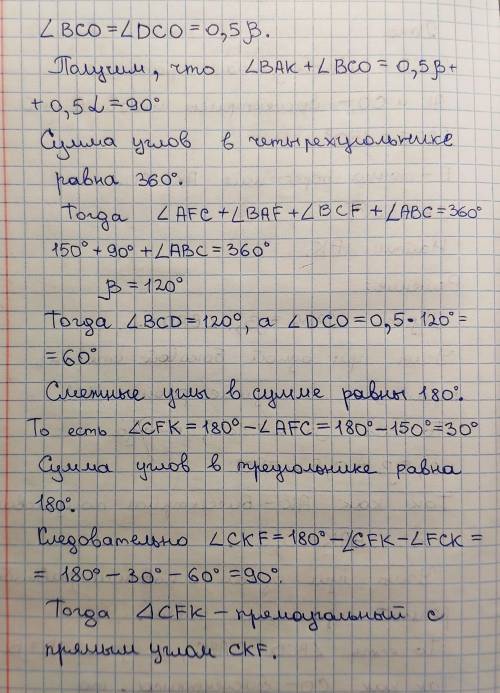 ∠BCO=∠DCO=0,5β.
Получим, что ∠BAK+∠BCO=0,5β+
+0,5α=90°
Сумма углов в четырехугольнике
равна 360°.
Тогда ∠AFC+∠BAF+∠BCF+∠ABC=360°
150°+90°+∠ABC=360°
β=120°
Тогда ∠BCD=120°, а ∠DCO=0,5·120°=
=60°
Смежные углы в сумме равны 180°.
То есть ∠CFK=180°-∠AFC=180°-150°=30°
Сумма углов в треугольнике равна
180°.
Следовательно ∠CKF=180°-∠CFK-∠FCK=
=180°-30°-60°=90°.
Тогда △CFK-прямоугальный с
прямым углом CKF.